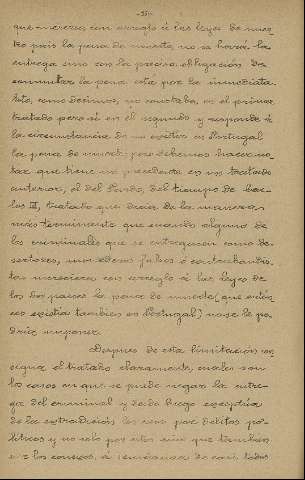 que merezca con arreglo á las leyes de nues-
tro pais la pena de muerte, no se hara la
entrega sino con la precisa obligación de
conmutar la pena esta por la inmediata.
Esto, como decimos, no constaba, en el primer
tratado pero si en el segundo y responde á
la circunstancia de no existir en Portugal
la pena de muerte; pero debemos hacer no-
tar que tiene un precedente en un tratado
anterior, el del Pardo, del tiempo de Car-
los III, tratado que decia de la manera
más terminante que cuando alguno de
los criminales que se entregasen como de-
sertores, monederos falsos ó contrabandis-
tas mereciera con arreglo á las leyes de
los dos paises la pena de muerte (que enton-
ces existia tambien en Portugal) no se le po-
dria imponer.
Despues de esta limitacion con
signa el tratado claramente, cuales son
los casos en que se puede negar la entre-
ga del criminal y desde luego exceptúa
de la extradición los reos por delitos po-
líticos y no solo por estos sino que tambien
los conexos, á semejanza de casi todos